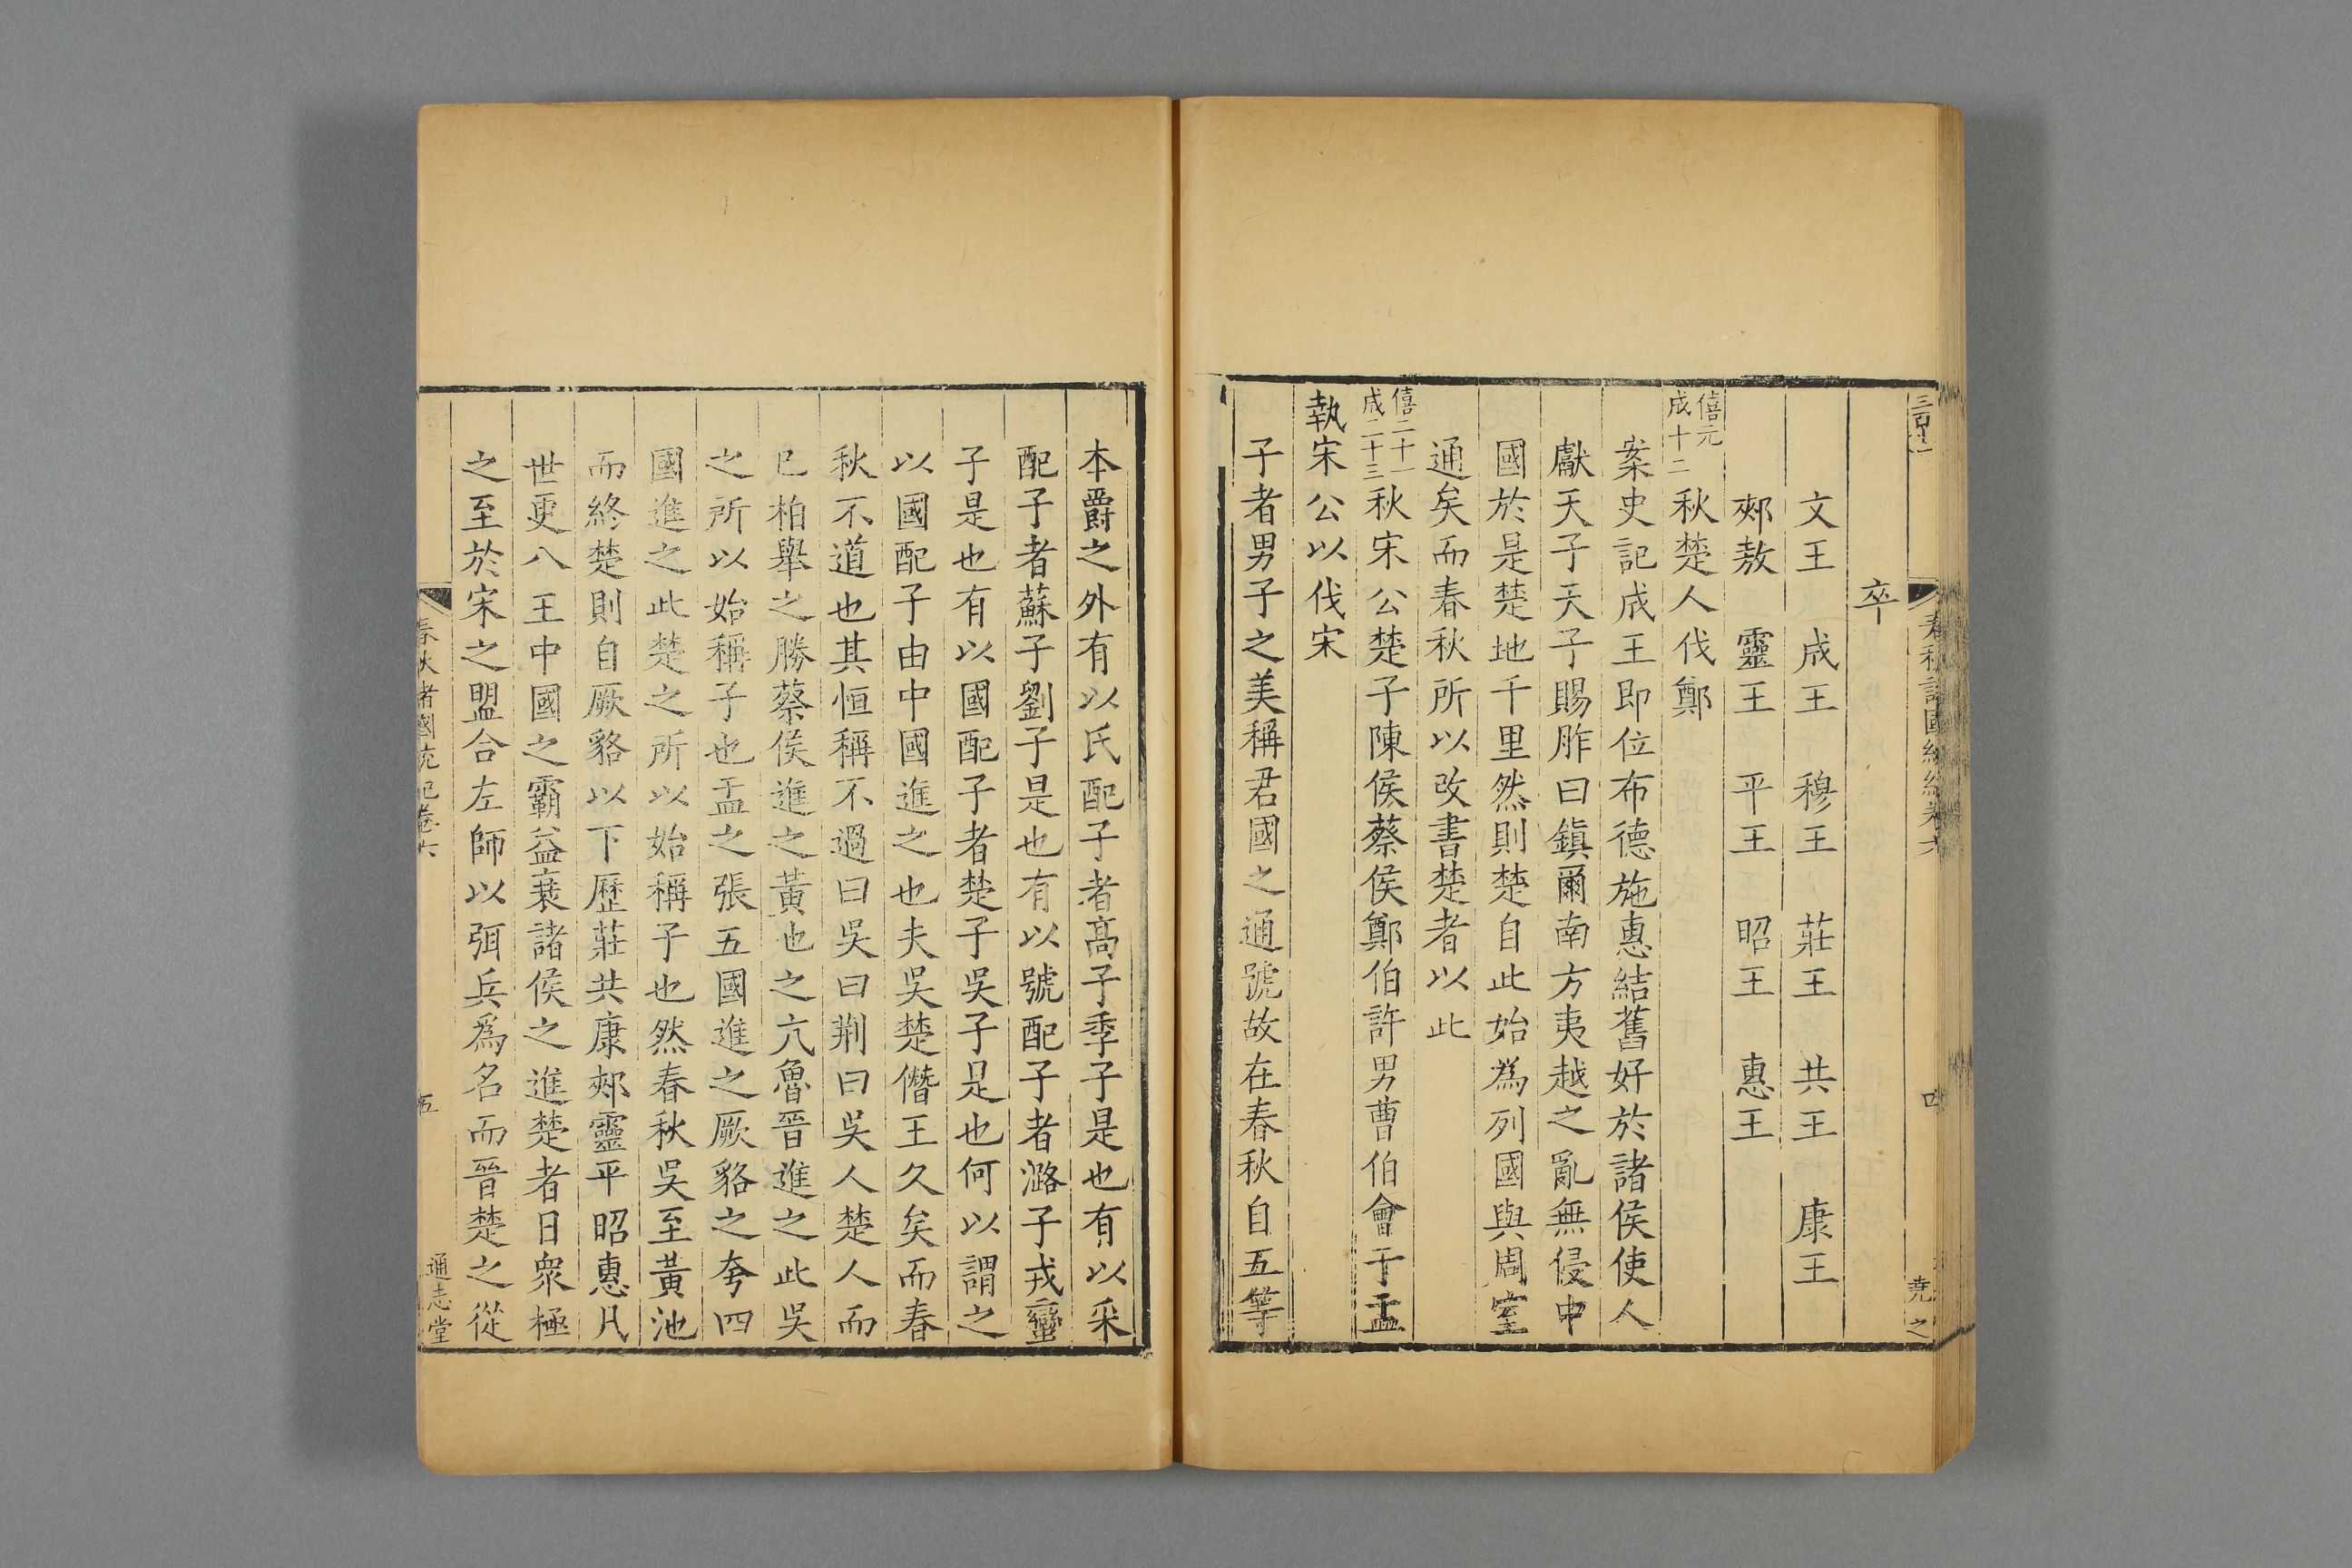 春秋諸國統紀卷六
四
卒
文王 成王 穆王 莊王 共王 康王
郟敖 靈王 平王 昭王 惠王
僖元
成十二
秋楚人伐鄭
案史記成王即位布德施惠結舊好於諸侯使人
獻天子天子賜胙曰鎮爾南方夷越之亂無侵中
國於是楚地千里然則楚自此始為列國與周室
通矣而春秋所以改書楚者以此
僖二十一
成二十三
秋宋公楚子陳侯蔡侯鄭伯許男曹伯會于盂
執宋公以伐宋
子者男子之美稱君國之通號故在春秋自五等
本爵之外有以氏配子者高子季子是也有以采
配子者蘇子劉子是也有以號配子者潞子戎蠻
子是也有以國配子者楚子吳子是也何以謂之
以國配子由中國進之也夫吳楚僭王久矣而春
秋不道也其恒稱不過曰吳曰荆曰吳人楚人而
已柏舉之勝蔡侯進之黃池之亢魯晉進之此吳
之所以始稱子也盂之張五國進之厥貉之夸四
國進之此楚之所以始稱子也然春秋吳至黃池
而終楚則自厥貉以下歷莊共康郟靈平昭惠凡
世更八王中國之霸益衰諸侯之進楚者日衆極
之至於宋之盟合左師以弭兵為名而晉楚之從
春秋諸國統紀卷六
五
通志堂